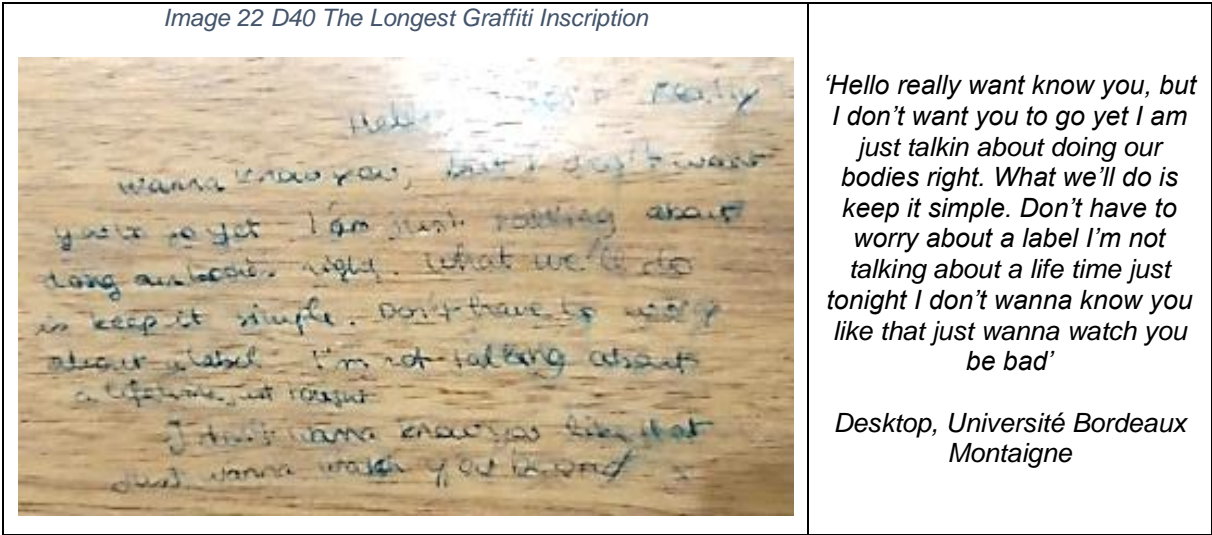 Image 22 D40 The Longest Graffiti Inscription
Hello really
wanna know you, but I don't want
you to go yet I am just talking about
doing our bodies right. What we'll do
is keep it simple. Don't have to worry
about a label I'm not talking about
a lifetime just tonight
I don't wanna know you like that
Just wanna watch you be bad
‘Hello really want know you, but
I don’t want you to go yet I am
just talkin about doing our
bodies right. What we’ll do is
keep it simple. Don’t have to
worry about a label I’m not
talking about a life time just
tonight I don’t wanna know you
like that just wanna watch you
be bad’
Desktop, Université Bordeaux
Montaigne